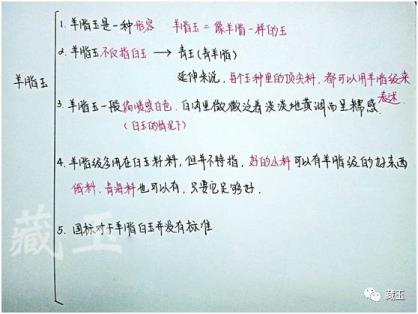 羊脂玉
1. 羊脂玉是一种形容 羊脂玉 = 像羊脂一样的玉
2. 羊脂玉不仅指白玉 → 青玉(青羊脂)
延伸来说，每个玉种里的顶尖料，都可以用羊脂级来表述.
3. 羊脂玉一般偏暖质白色，白肉里微微泛着淡淡地黄调而呈糯感.
(白玉的情况下)
4. 羊脂级多用在白玉籽料，但并不特指，好的山料可以有羊脂级的好东西
俄料，青海料也可以有，只要它足够好.
5. 国标对于羊脂白玉并没有标准
藏玉
藏玉